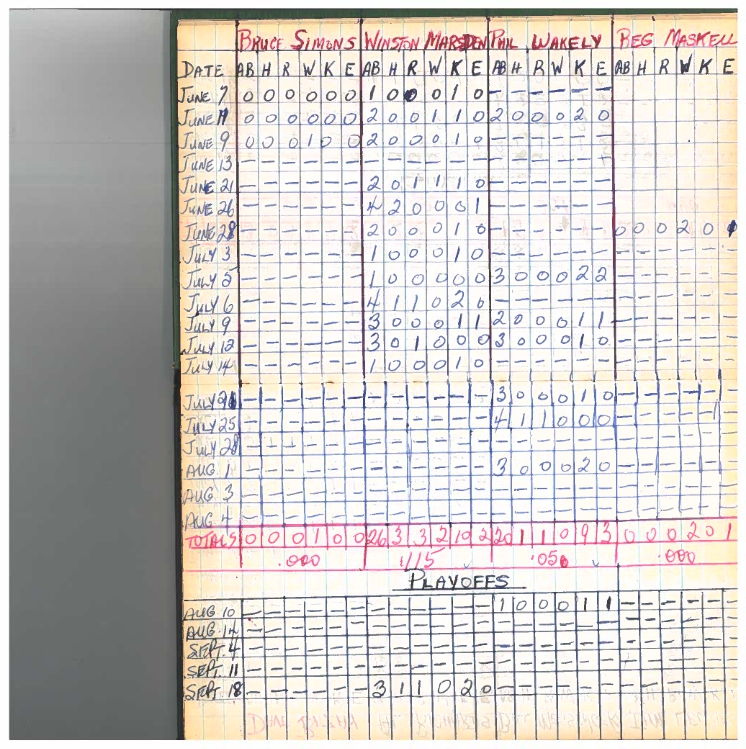 BRUCE SIMONS WINSTON MARSDEN PHIL WAKELY REG MASKELL
DATE AB H R W K E AB H R W K E AB H R W K E AB H R W K E
JUNE 7 0 0 0 0 0 0 1 0 0 0 1 0 – – – – – –
JUNE 0 0 0 0 0 0 2 0 0 1 1 0 2 0 0 0 2 0
JUNE 9 0 0 0 1 0 0 2 0 0 0 1 0 – – – – – –
JUNE 13 – – – – – – – – – – – – – – – – – –
JUNE 21 – – – – – – 2 0 1 1 1 0 – – – – – –
JUNE 26 – – – – – – 4 2 0 0 0 1 – – – – – –
JUNE 28 – – – – – – 2 0 0 0 1 0 – – – – – – 0 0 0 2 0 1
JULY 3 – – – – – – 1 0 0 0 1 0 – – – – – – – – – – – –
JULY 5 – – – – – – 1 0 0 0 0 0 3 0 0 0 2 2 – – – – – –
JULY 6 – – – – – – 4 1 1 0 2 0 – – – – – – – – – – – –
JULY 9 – – – – – – 3 0 0 0 1 1 2 0 0 0 1 1 – – – – – –
JULY 12 – – – – – – 3 0 1 0 0 0 3 0 0 0 1 0 – – – – – –
JULY 14 – – – – – – 1 0 0 0 1 0 – – – – – – – – – – – –
JULY – – – – – – – – – – – – 3 0 0 0 1 0 – – – – – –
JULY 25 – – – – – – – – – – – – 4 1 1 0 0 0 – – – – – –
JULY 28 – – – – – – – – – – – – – – – – – – – – – – – –
AUG 1 – – – – – – – – – – – – 3 0 0 0 2 0 – – – – – –
AUG 3 – – – – – – – – – – – – – – – – – – – – – – – –
AUG 4 – – – – – – – – – – – – – – – – – – – – – – – –
TOTALS 0 0 0 1 0 0 26 3 3 2 10 2 20 1 1 0 9 3 0 0 0 2 0 1
.000 .115 .050 .000
PLAYOFFS
AUG 10 – – – – – – – – – – – – 1 0 0 0 1 1 – – – – – –
AUG 14 – – – – – – – – – – – – – – – – – – – – – – – –
SEPT. 4 – – – – – – – – – – – – – – – – – – – – – – – –
SEPT. 11 – – – – – – – – – – – – – – – – – – – – – – – –
SEPT 18 – – – – – – 3 1 1 0 2 0 – – – – – – – – – – – –